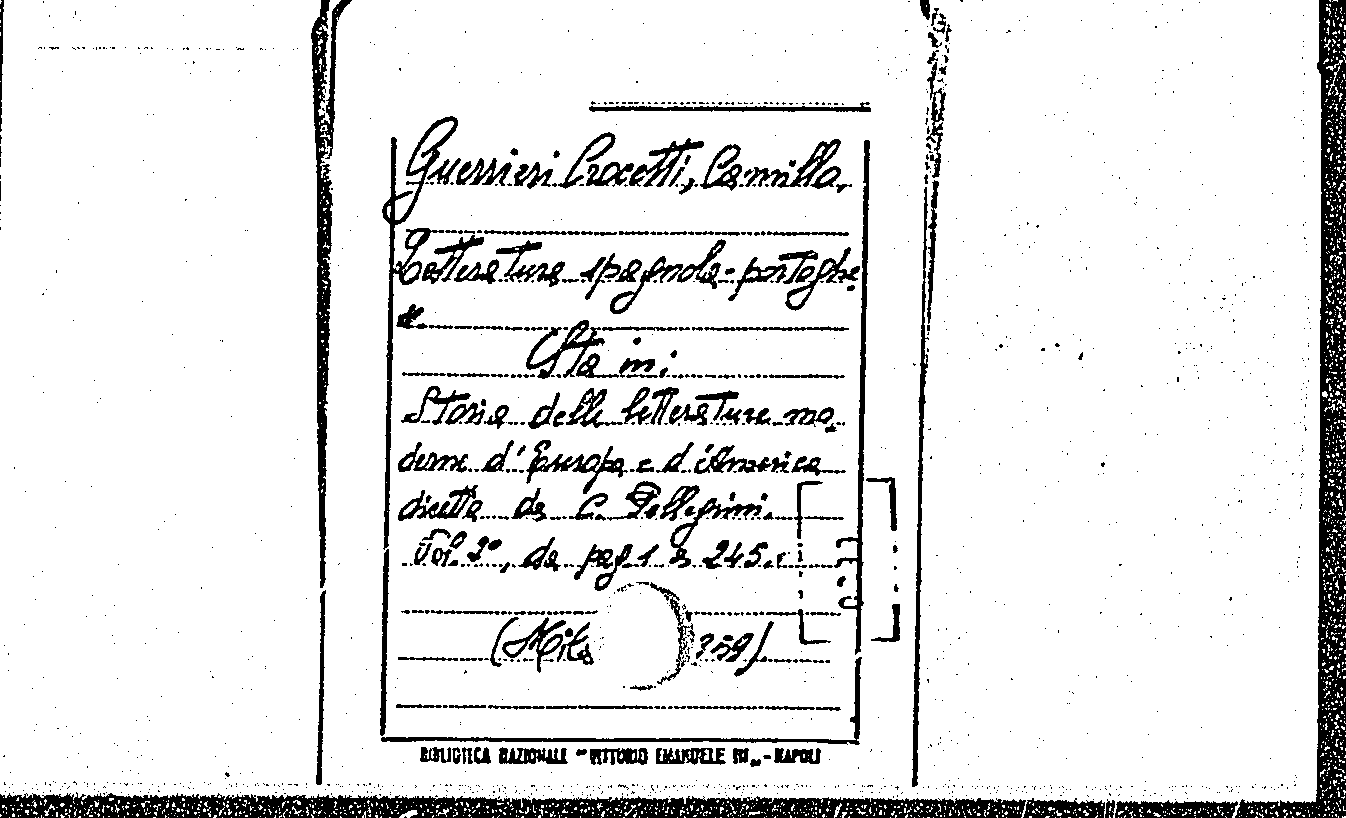 Guerrieri Crocetti, Camillo.
Letteratura spagnola-portoghe
se.
Sta in:
Storia delle letterature mo
derne d'Europa e d'America
diretta da C. Pellegrini.
Vol. 2°, da pag. 1 a 245.
BIBLIOTECA NAZIONALE "VITTORIO EMANUELE III" - NAPOLI